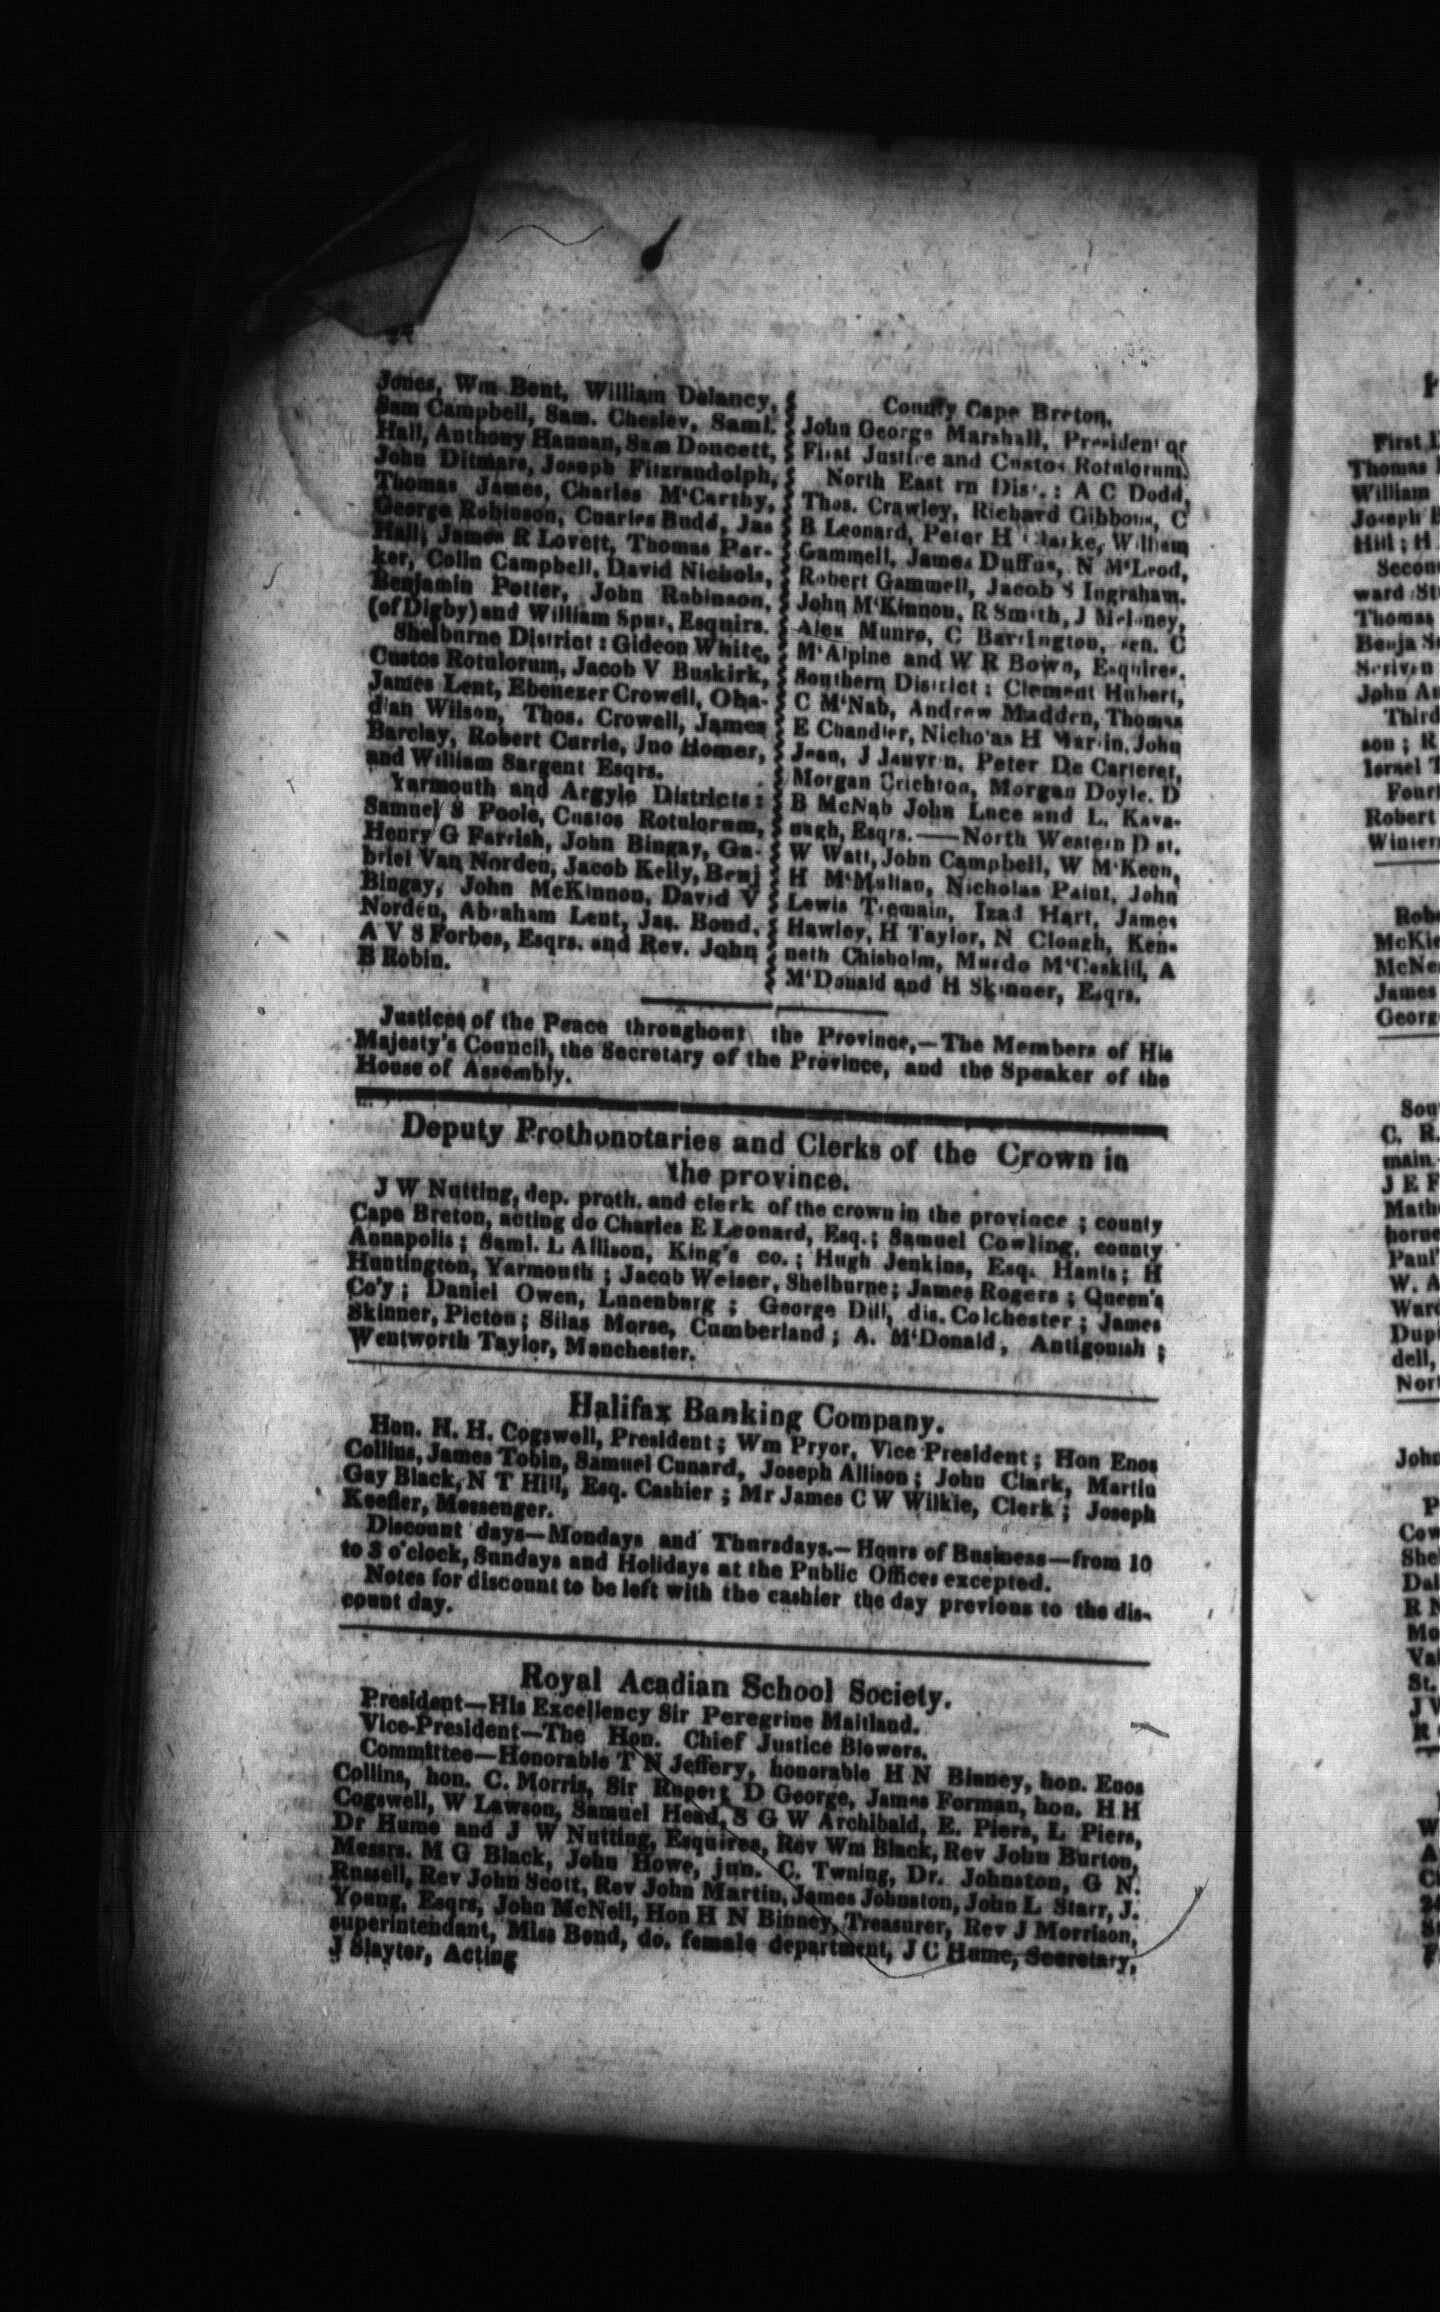 Jones, Wm Bent, William Delancy,
Sam Campbell, Sam. Chesley, Saml.
Hall, Anthony Hannan, Sam Doucett,
John Ditmars, Joseph Fitzrandolph,
Thomas James, Charles M'Carthy,
George Robinson, Cuaries Budd, Jas
Hall, James R Lovett, Thomas Par-
ker, Colin Campbell, David Nichols,
Benjamin Potter, John Robinson,
(of Digby) and William Spur, Esquirs.
Shelburne District : Gideon White,
Custos Rotulorum, Jacob V Buskirk,
James Lent, Ebenezer Crowell, Oba-
d'an Wilson, Thos. Crowell, James
Barclay, Robert Currie, Jno Homer,
and William Sargent Esqrs.
Yarmouth and Argyle Districts :
Samuel S Poole, Custos Rotulorum,
Henry G Farrish, John Bingay, Ga-
briel Van Norden, Jacob Kelly, Benj
Bingay, John McKinnon, David V
Norden, Abraham Lent, Jas. Bond,
A V S Forbes, Esqrs. and Rev. John
B Robin.
County Cape Breton.
John George Marshall, President or
First Justice and Custos Rotulorum.
North East rn Dist. : A C Dodd,
Thos. Crawley, Richard Gibbons, C
B Leonard, Peter H Clarke, William
Gammell, James Duffus, N M'Leod,
Robert Gammell, Jacob S Ingraham,
John M'Kinnon, R Smith, J Meloney,
Alex Munro, C Barrington, sen. C
M'Alpine and W R Bown, Esquires.
Southern District : Clement Hubert,
C M'Nab, Andrew Madden, Thomas
E Chandler, Nicholas H Martin, John
Jean, J Jauvrin, Peter De Carteret,
Morgan Crichton, Morgan Doyle. D
B McNab John Luce and L. Kava-
nagh, Esqrs. —— North Western D st.
W Watt, John Campbell, W M'Keen,
H M'Mullan, Nicholas Paint, John
Lewis Tremain, Izad Hart, James
Hawley, H Taylor, N Clough, Ken-
neth Chisholm, Murdo M'Caskill, A
M'Donald and H Skinner, Esqrs.
Justices of the Peace throughout the Province,—The Members of His
Majesty's Council, the Secretary of the Province, and the Speaker of the
House of Assembly.
Deputy Prothonotaries and Clerks of the Crown in
the province.
J W Nutting, dep. proth. and clerk of the crown in the province ; county
Cape Breton, acting do Charles E Leonard, Esq. ; Samuel Cowling, county
Annapolis ; Saml. L Allison, King's co. ; Hugh Jenkins, Esq. Hants ; H
Huntington, Yarmouth ; Jacob Weiser, Shelburne ; James Rogers ; Queen's
Co'y ; Daniel Owen, Lunenburg ; George Dill, dis. Colchester ; James
Skinner, Pictou ; Silas Morse, Cumberland ; A. M'Donald, Antigonish ;
Wentworth Taylor, Manchester.
Halifax Banking Company.
Hon. H. H. Cogswell, President ; Wm Pryor, Vice President ; Hon Enos
Collins, James Tobin, Samuel Cunard, Joseph Allison ; John Clark, Martin
Gay Black, N T Hill, Esq. Cashier ; Mr James C W Wilkie, Clerk ; Joseph
Keefler, Messenger.
Discount days—Mondays and Thursdays.—Hours of Business—from 10
to 3 o'clock, Sundays and Holidays at the Public Offices excepted.
Notes for discount to be left with the cashier the day previous to the dis-
count day.
Royal Acadian School Society.
President—His Excellency Sir Peregrine Maitland.
Vice-President—The Hon. Chief Justice Blowers.
Committee—Honorable T N Jeffery, honorable H N Binney, hon. Enos
Collins, hon. C. Morris, Sir Rupert D George, James Forman, hon. H H
Cogswell, W Lawson, Samuel Head, S G W Archibald, E. Piers, L Piers,
Dr Hume and J W Nutting, Esquires, Rev Wm Black, Rev John Burton,
Messrs. M G Black, John Howe, jun. C. Twning, Dr. Johnston, G N.
Russell, Rev John Scott, Rev John Martin, James Johnston, John L Starr, J.
Young, Esqrs, John McNeil, Hon H N Binney, Treasurer, Rev J Morrison,
superintendant, Miss Bond, do. female department, J C Hume, Secretary,
J Slayter, Acting
First
Thomas
William
Joseph B
Hill ; H
Secon
ward
Thomas
Third
son ; R
Israel T
Robert
James
Georg
C. R.
main
J E F
Paul'
W. A
Ward
dell,
Nort
John
Cow
Shel
Dal
R N
Mo
Val
St.
J V
R